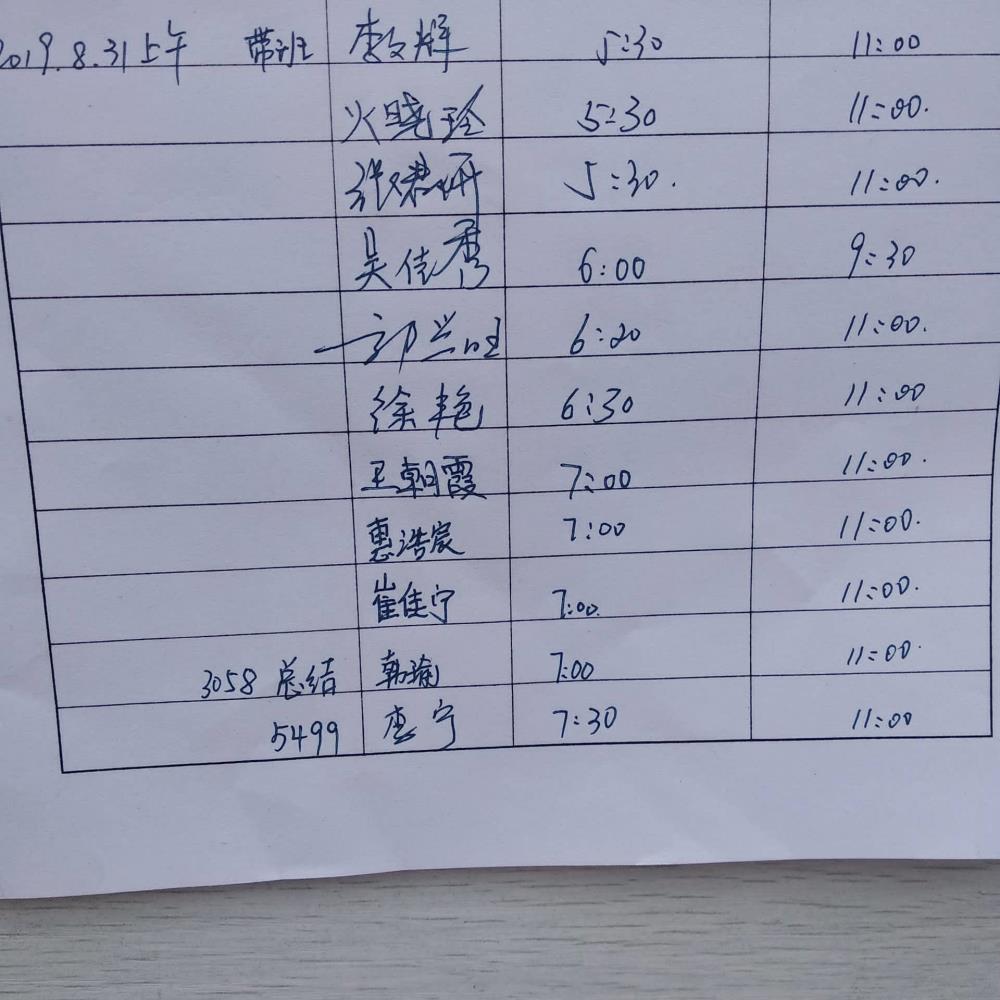 2019.8.31上午 带班 李文辉 5:30 11:00
火晓玲 5:30 11:00.
张君妍 5:30. 11:00.
吴佳秀 6:00 9:30
郭兰旺 6:20 11:00.
徐艳 6:30 11:00
王朝霞 7:00 11:00.
惠浩宸 7:00 11:00.
崔佳宁 7:00. 11:00.
3058 总结 韩瑜 7:00 11:00.
5499 李宁 7:30 11:00